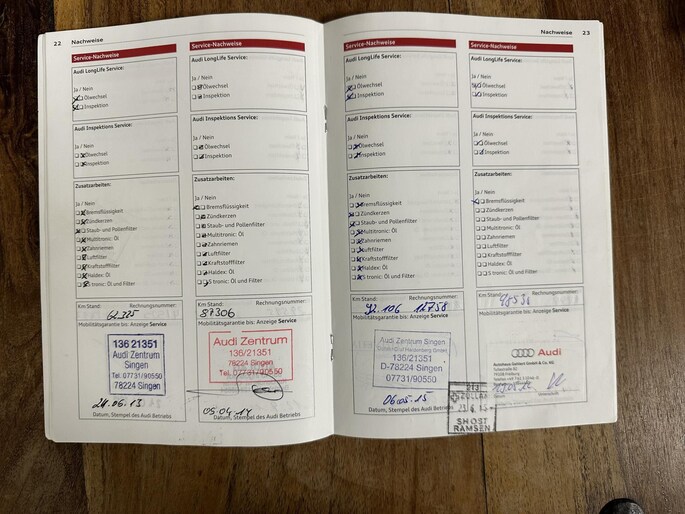 22 Nachweise
Service-Nachweise
Audi LongLife Service:
Ja / Nein
Ölwechsel
Inspektion
Audi Inspektions Service:
Ja / Nein
Ölwechsel
Inspektion
Zusatzarbeiten:
Ja / Nein
Bremsflüssigkeit
Zündkerzen
Staub- und Pollenfilter
Multitronic: Öl
Zahnriemen
Luftfilter
Kraftstofffilter
Haldex: Öl
S tronic: Öl und Filter
Km Stand: Rechnungsnummer:
Mobilitätsgarantie bis: Anzeige Service
136 21351
Audi Zentrum
Singen
Tel. 07731/90550
78224 Singen
24.06.13
Datum, Stempel des Audi Betriebs
Service-Nachweise
Audi LongLife Service:
Ja / Nein
Ölwechsel
Inspektion
Audi Inspektions Service:
Ja / Nein
Ölwechsel
Inspektion
Zusatzarbeiten:
Ja / Nein
Bremsflüssigkeit
Zündkerzen
Staub- und Pollenfilter
Multitronic: Öl
Zahnriemen
Luftfilter
Kraftstofffilter
Haldex: Öl
S tronic: Öl und Filter
Km Stand: Rechnungsnummer:
87306
Mobilitätsgarantie bis: Anzeige Service
Audi Zentrum
136/21351
78224 Singen
Tel. 07731/90550
05.04.14
Datum, Stempel des Audi Betriebs
Nachweise 23
Service-Nachweise
Audi LongLife Service:
Ja / Nein
Ölwechsel
Inspektion
Audi Inspektions Service:
Ja / Nein
Ölwechsel
Inspektion
Zusatzarbeiten:
Ja / Nein
Bremsflüssigkeit
Zündkerzen
Staub- und Pollenfilter
Multitronic: Öl
Zahnriemen
Luftfilter
Kraftstofffilter
Haldex: Öl
S tronic: Öl und Filter
Km Stand: Rechnungsnummer:
92.106 12758
Mobilitätsgarantie bis: Anzeige Service
Audi Zentrum Singen
136/21351
D-78224 Singen
07731/90550
06.05.15
Datum, Stempel des Audi Betriebs
Service-Nachweise
Audi LongLife Service:
Ja / Nein
Ölwechsel
Inspektion
Audi Inspektions Service:
Ja / Nein
Ölwechsel
Inspektion
Zusatzarbeiten:
Ja / Nein
Bremsflüssigkeit
Zündkerzen
Staub- und Pollenfilter
Multitronic: Öl
Zahnriemen
Luftfilter
Kraftstofffilter
Haldex: Öl
S tronic: Öl und Filter
Km Stand: Rechnungsnummer:
Mobilitätsgarantie bis: Anzeige Service
Audi
Datum, Stempel des Audi Betriebs
213
ZOLL
SH OST
RAMSEN